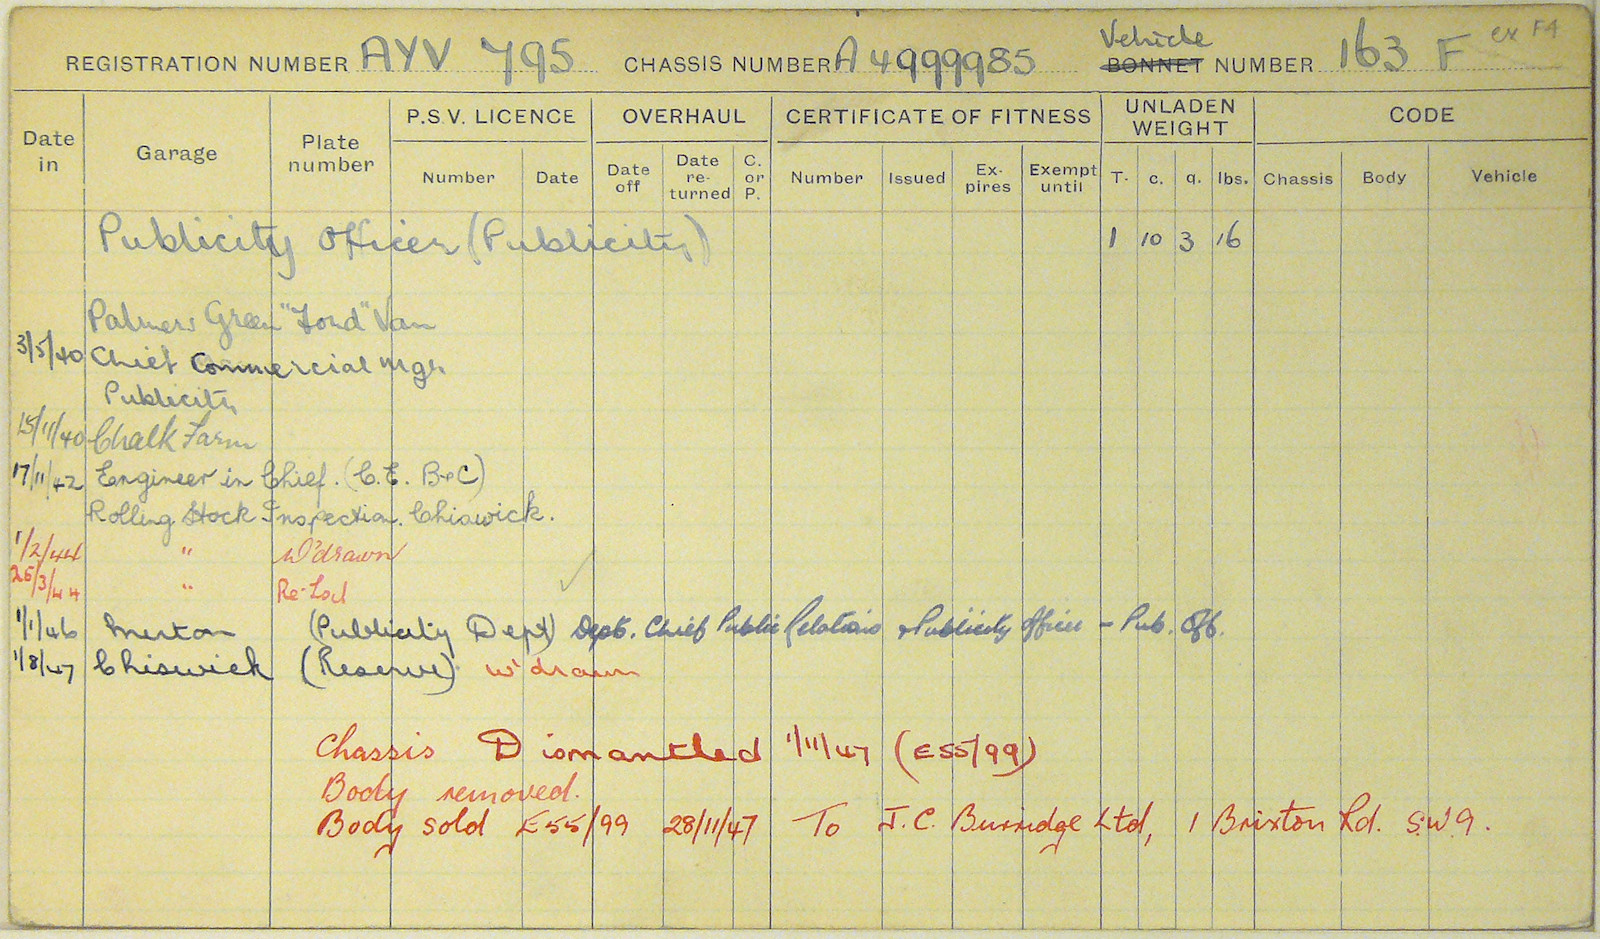 REGISTRATION NUMBER AYV 795 CHASSIS NUMBER A 4999985 Vehicle BONNET NUMBER 163 F ex F4
Date in Garage Plate number P.S.V. LICENCE OVERHAUL CERTIFICATE OF FITNESS UNLADEN WEIGHT CODE
Number Date Date off Date re-turned C. or P. Number Issued Ex-pires Exempt until T. c. q. lbs. Chassis Body Vehicle
Publicity Officer (Publicity) 1 10 3 16
Palmers Green "Ford" Van
3/5/40 Chief Commercial Mgr.
Publicity
15/11/40 Chalk Farm
17/11/42 Engineer in Chief. (C.E. B+C)
Rolling Stock Inspection. Chiswick.
1/2/44 " W'drawn
25/3/44 " Re-Lcd
1/1/46 Merton (Publicity Dept) Dept. Chief Public Relations & Publicity Officer - Pub. Off.
1/8/47 Chiswick (Reserve) w'drawn
Chassis Dismantled 1/11/47 (E55/99)
Body removed.
Body sold E55/99 28/11/47 To J.C. Burridge Ltd, 1 Brixton Rd. S.W.9.